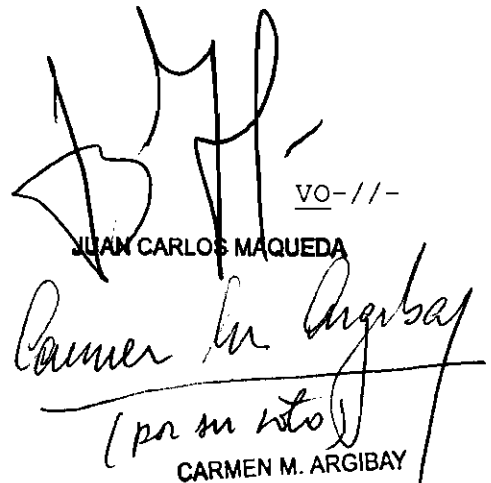 VO-//-
JUAN CARLOS MAQUEDA
Carmen M. Argibay
(por su voto)
CARMEN M. ARGIBAY